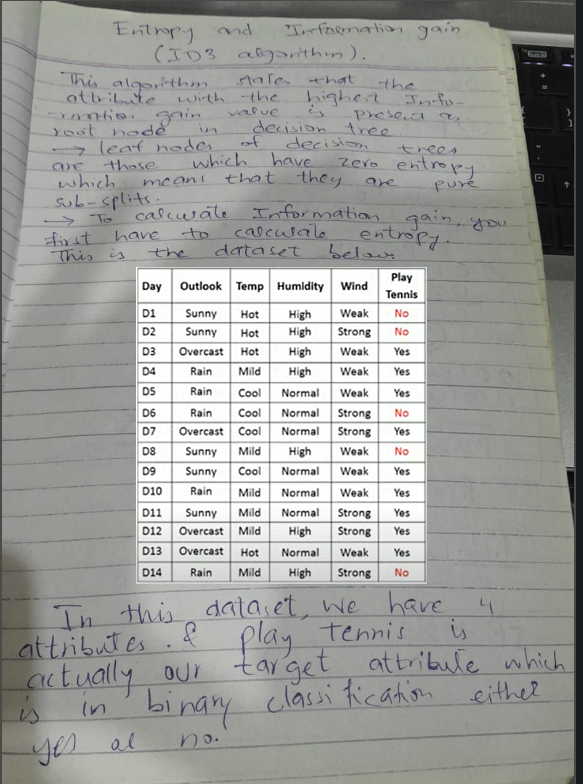 Entropy and Information gain
(ID3 algorithm).
This algorithm states that the
attribute with the highest Info-
-rmation gain value is present as
root node in decision tree
→ leaf nodes of decision trees
are those which have zero entropy
which means that they are pure
sub-splits.
→ To calculate Information gain, you
first have to calculate entropy.
This is the dataset below
Day Outlook Temp Humidity Wind Play Tennis
D1 Sunny Hot High Weak No
D2 Sunny Hot High Strong No
D3 Overcast Hot High Weak Yes
D4 Rain Mild High Weak Yes
D5 Rain Cool Normal Weak Yes
D6 Rain Cool Normal Strong No
D7 Overcast Cool Normal Strong Yes
D8 Sunny Mild High Weak No
D9 Sunny Cool Normal Weak Yes
D10 Rain Mild Normal Weak Yes
D11 Sunny Mild Normal Strong Yes
D12 Overcast Mild High Strong Yes
D13 Overcast Hot Normal Weak Yes
D14 Rain Mild High Strong No
In this dataset, we have 4
attributes. & play tennis is
actually our target attribute which
is in binary classification either
yes or no.